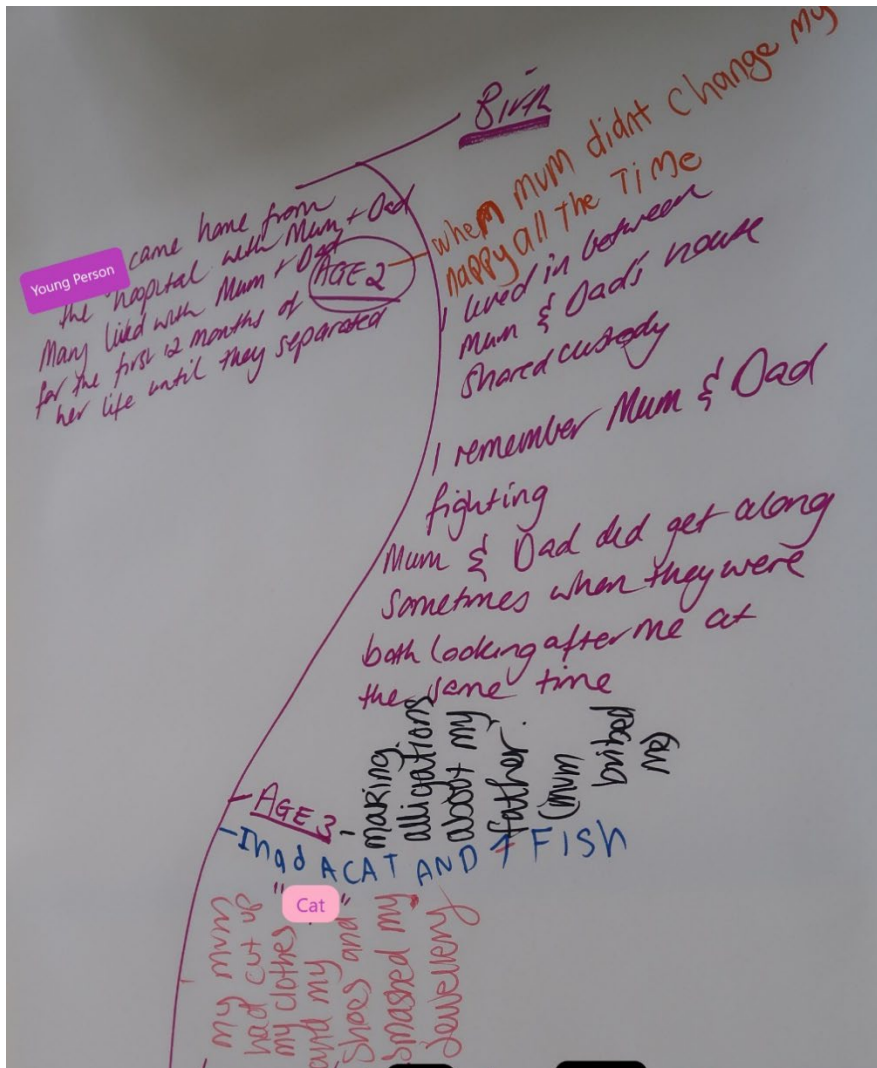 Birth
when mum didnt change my
nappy all the Time
Young Person
came home from
the hospital with Mum + Dad
Many lived with Mum + Dad
for the first 12 months of
her life until they separated
AGE 2
I lived in between
Mum & Dad's house
Shared custody
I remember Mum & Dad
fighting
Mum & Dad did get along
Sometimes when they were
both looking after me at
the same time
AGE 3
making
alligations
about my
father.
(mum
bribed
me)
- I had A CAT AND 7 FISh
"Cat"
my mum
had cut up
my clothes
and my
shoes and
smashed my
jewellery